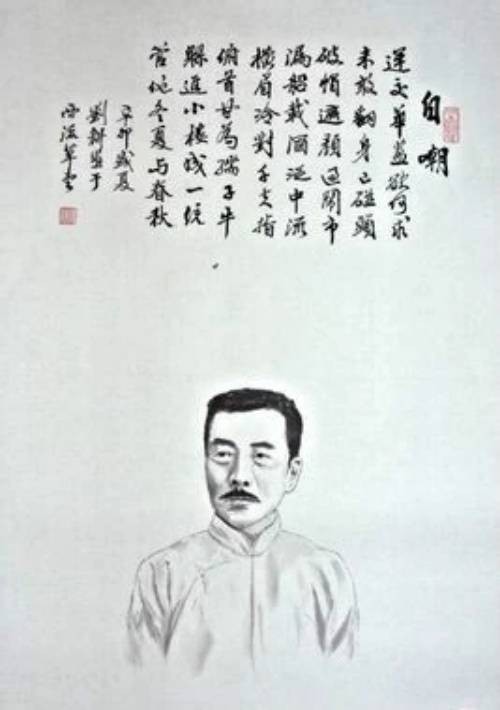 自嘲
運交華蓋欲何求
未敢翻身已碰頭
破帽遮顏過鬧市
漏船載酒泛中流
橫眉冷對千夫指
俯首甘為孺子牛
躲進小樓成一統
管他冬夏与春秋
辛卯盛夏
劉于
草堂